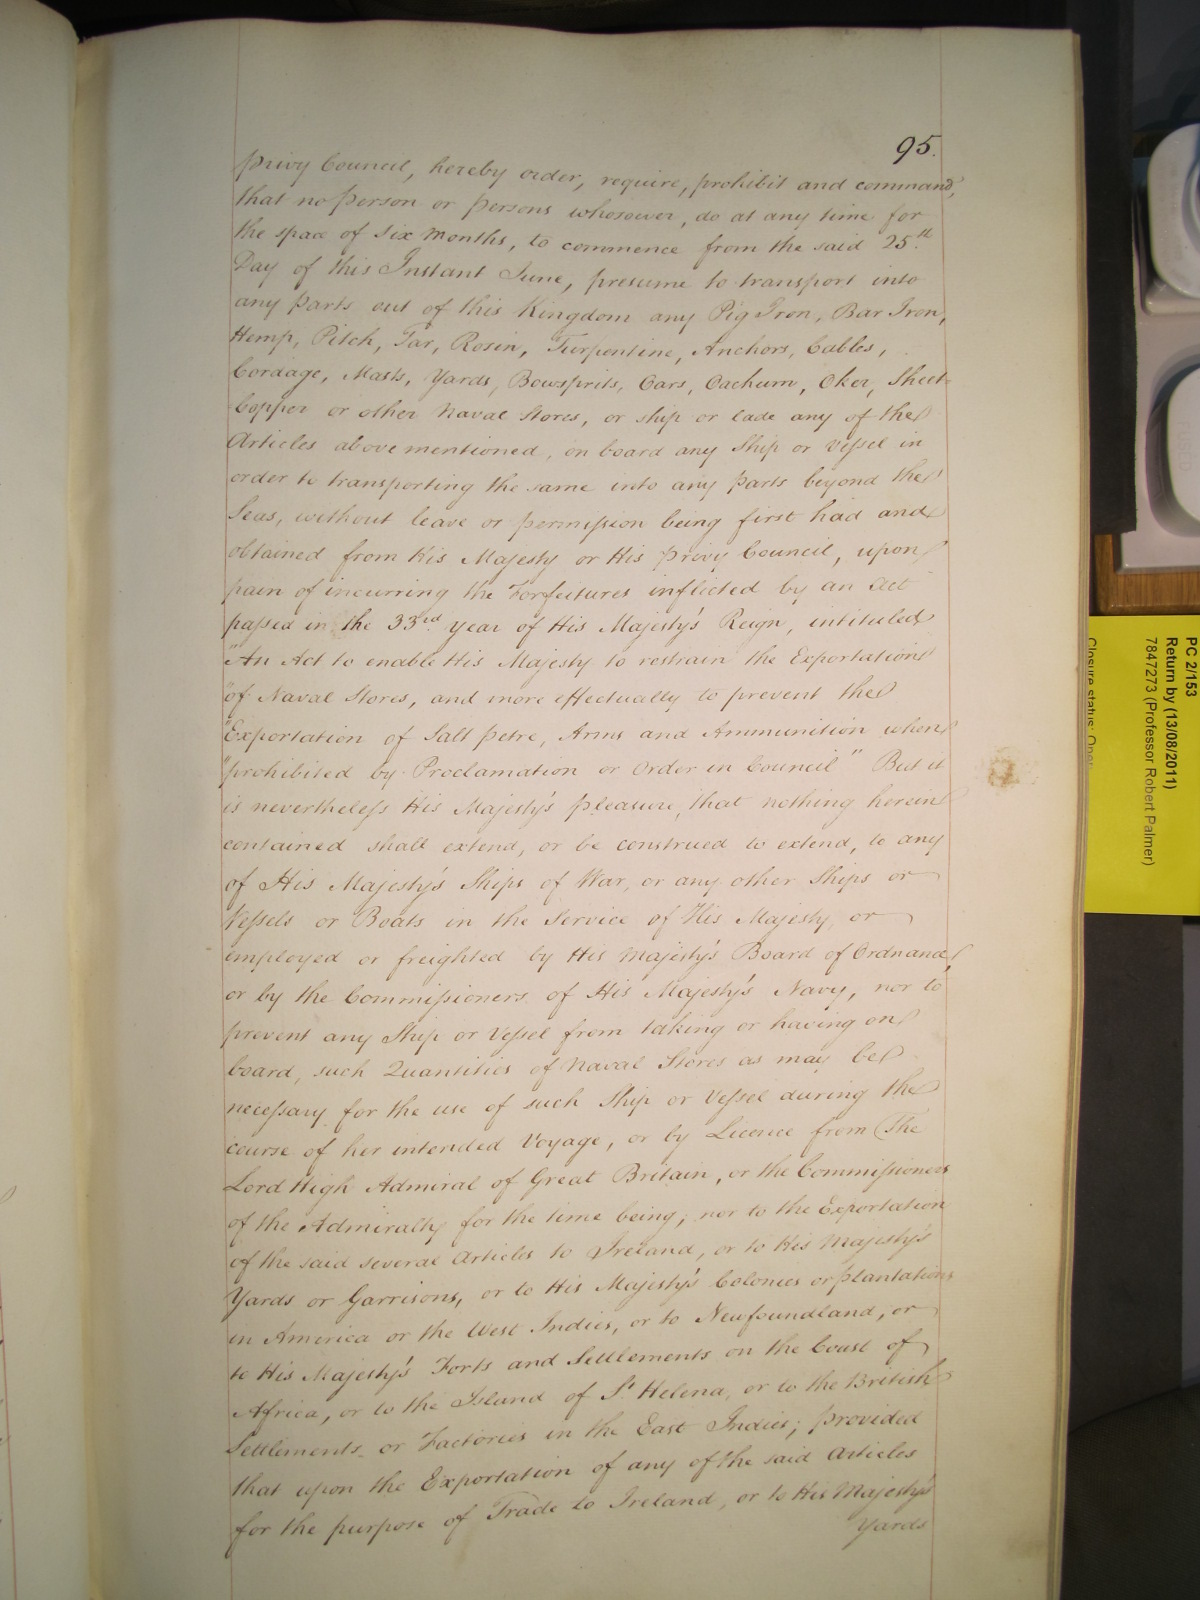 95.
Privy Council, hereby order, require, prohibit and command,
that no Person or Persons whosoever, do at any time for
the space of Six Months, to commence from the said 25th
Day of this Instant June, presume to transport into
any Parts out of this Kingdom any Pig Iron, Bar Iron,
Hemp, Pitch, Tar, Rosin, Turpentine, Anchors, Cables,
Cordage, Masts, Yards, Bowsprits, Oars, Oachum, Oker, Sheet
Copper or other Naval Stores, or ship or lade any of the
Articles abovementioned, on board any Ship or Vessel in
order to transporting the same into any Parts beyond the
Seas, without leave or permission being first had and
obtained from His Majesty or His Privy Council, upon
pain of incurring the Forfeitures inflicted by an Act
passed in the 33rd year of His Majesty's Reign, intituled
"An Act to enable His Majesty to restrain the Exportation
"of Naval Stores, and more effectually to prevent the
"Exportation of Salt Petre, Arms and Ammunition when
"prohibited by Proclamation or Order in Council" But it
is nevertheless His Majesty's pleasure, that nothing herein
contained shall extend, or be construed to extend, to any
of His Majesty's Ships of War, or any other Ships or
Vessels or Boats in the Service of His Majesty, or
employed or freighted by His Majesty's Board of Ordnance,
or by the Commissioners of His Majesty's Navy, nor to
prevent any Ship or Vessel from taking or having on
board, such Quantities of Naval Stores as may be
necessary for the use of such Ship or Vessel during the
course of her intended Voyage, or by Licence from The
Lord High Admiral of Great Britain, or the Commissioners
of the Admiralty for the time being; nor to the Exportation
of the said several Articles to Ireland, or to His Majesty's
Yards or Garrisons, or to His Majesty's Colonies or plantations
in America or the West Indies, or to Newfoundland, or
to His Majesty's Forts and Settlements on the Coast of
Africa, or to the Island of St Helena, or to the British
Settlements or Factories in the East Indies; provided
that upon the Exportation of any of the said Articles
for the purpose of Trade to Ireland, or to His Majesty's
Yards
PC 2/153
Return by (13/08/2011)
7847273 (Professor Robert Palmer)
Closure status: Open